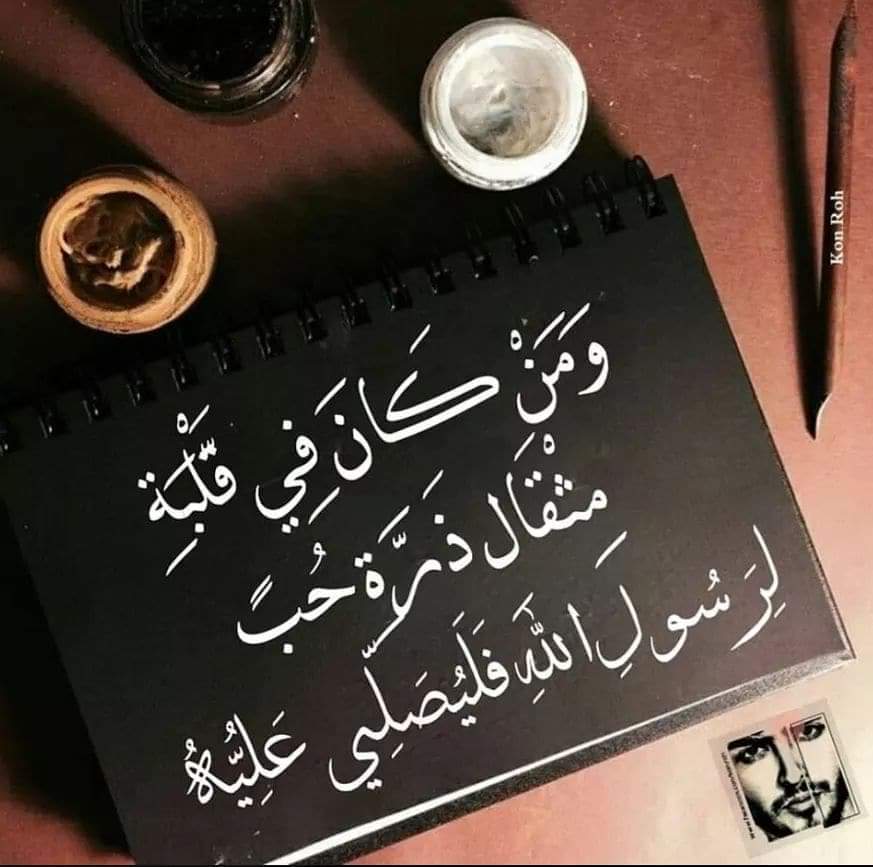 وَمَنْ كَانَ فِي قَلْبَةِ
مِثْقَال ذَرَّة حُبً
لِرَسُولِ اللَّهِ فَلَيُصَلِّي عَلِيُّهُ
Kon Roh